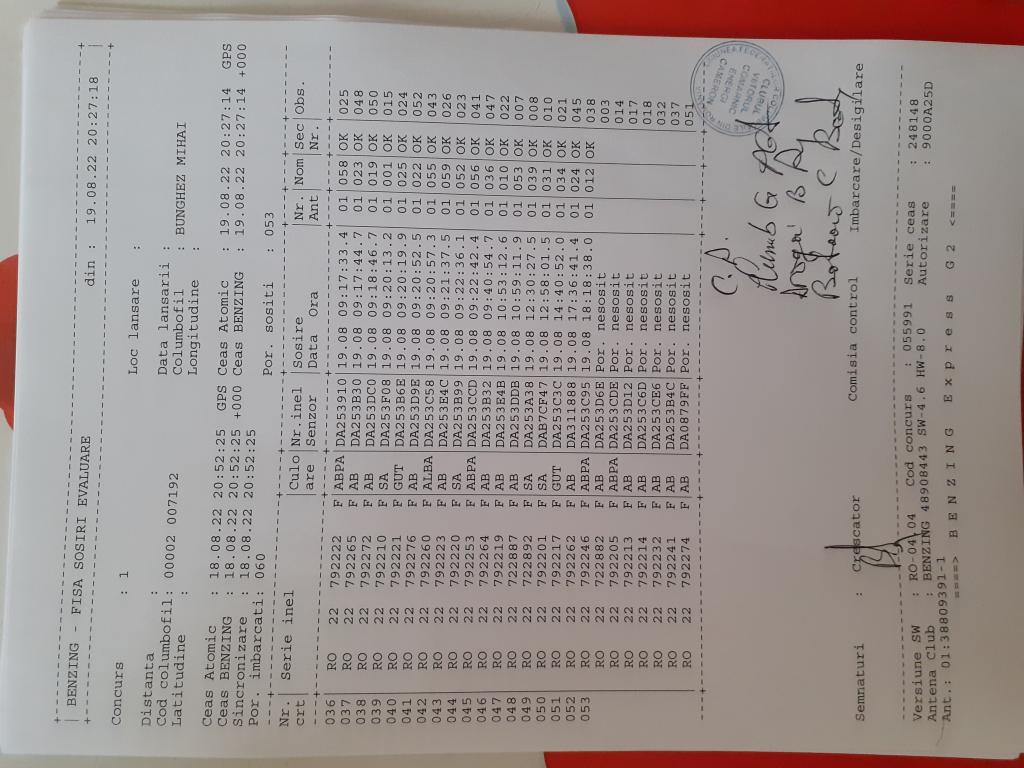 BENZING - FISA SOSIRI EVALUARE din : 19.08.22 20:27:18
Concurs : 1
Loc lansare :
Distanta : Data lansarii :
Cod columbofil: 00002 007192 Columbofil : BUNGHEZ MIHAI
Latitudine : Longitudine :
Ceas Atomic : 18.08.22 20:52:25 GPS Ceas Atomic : 19.08.22 20:27:14 GPS
Ceas BENZING : 18.08.22 20:52:25 +000 Ceas BENZING : 19.08.22 20:27:14 +000
Sincronizare : 18.08.22 20:52:25
Por. imbarcati: 060 Por. sositi : 053
Nr. | Serie inel |Culo|Nr.inel |Sosire |Nr. |Nom |Sec|Obs.
crt | |are |Senzor |Data Ora |Ant | |Nr.|
036 RO 22 792222 F ABPA DA253910 19.08 09:17:33.4 01 058 OK 025
037 RO 22 792265 F AB DA253B30 19.08 09:17:44.7 01 023 OK 048
038 RO 22 792272 F AB DA253DC0 19.08 09:18:46.7 01 019 OK 050
039 RO 22 792210 F SA DA253F08 19.08 09:20:13.2 01 001 OK 015
040 RO 22 792221 F GUT DA253B6E 19.08 09:20:19.9 01 025 OK 024
041 RO 22 792276 F AB DA253D9E 19.08 09:20:52.5 01 022 OK 052
042 RO 22 792260 F ALBA DA253C58 19.08 09:20:57.3 01 055 OK 043
043 RO 22 792223 F AB DA253E4C 19.08 09:21:37.5 01 059 OK 026
044 RO 22 792220 F SA DA253B99 19.08 09:22:36.1 01 052 OK 023
045 RO 22 792253 F ABPA DA253CCD 19.08 09:22:42.4 01 056 OK 041
046 RO 22 792264 F AB DA253B32 19.08 09:40:54.7 01 036 OK 047
047 RO 22 792219 F AB DA253E4B 19.08 10:53:12.6 01 010 OK 022
048 RO 22 722887 F AB DA253DDB 19.08 10:59:11.9 01 053 OK 007
049 RO 22 722892 F SA DA253A38 19.08 12:30:27.5 01 039 OK 008
050 RO 22 792201 F SA DAB7CF47 19.08 12:58:01.5 01 031 OK 010
051 RO 22 792217 F GUT DA253C3C 19.08 14:40:52.0 01 034 OK 021
052 RO 22 792262 F AB DA311888 19.08 17:36:41.4 01 024 OK 045
053 RO 22 792246 F ABPA DA253C95 19.08 18:18:38.0 01 012 OK 038
RO 22 722882 F AB DA253D6E Por. nesosit 003
RO 22 792205 F ABPA DA253CDE Por. nesosit 014
RO 22 792213 F AB DA253D12 Por. nesosit 017
RO 22 792214 F AB DA253C6D Por. nesosit 018
RO 22 792232 F AB DA253CE6 Por. nesosit 032
RO 22 792241 F AB DA253B4C Por. nesosit 037
RO 22 792274 F AB DA0879FF Por. nesosit 051
CLUBUL
VIITORUL
COMARNIC
C.A.
Semnaturi : Crescator Comisia control Imbarcare/Desigilare
Versiune SW : RO-04.04 Cod concurs : 055991 Serie ceas : 248148
Antena Club : BENZING 48908443 SW-4.6 HW-8.0 Autorizare : 9000A25D
Ant.: 01:38809391-1
====> B E N Z I N G E x p r e s s G 2 <====